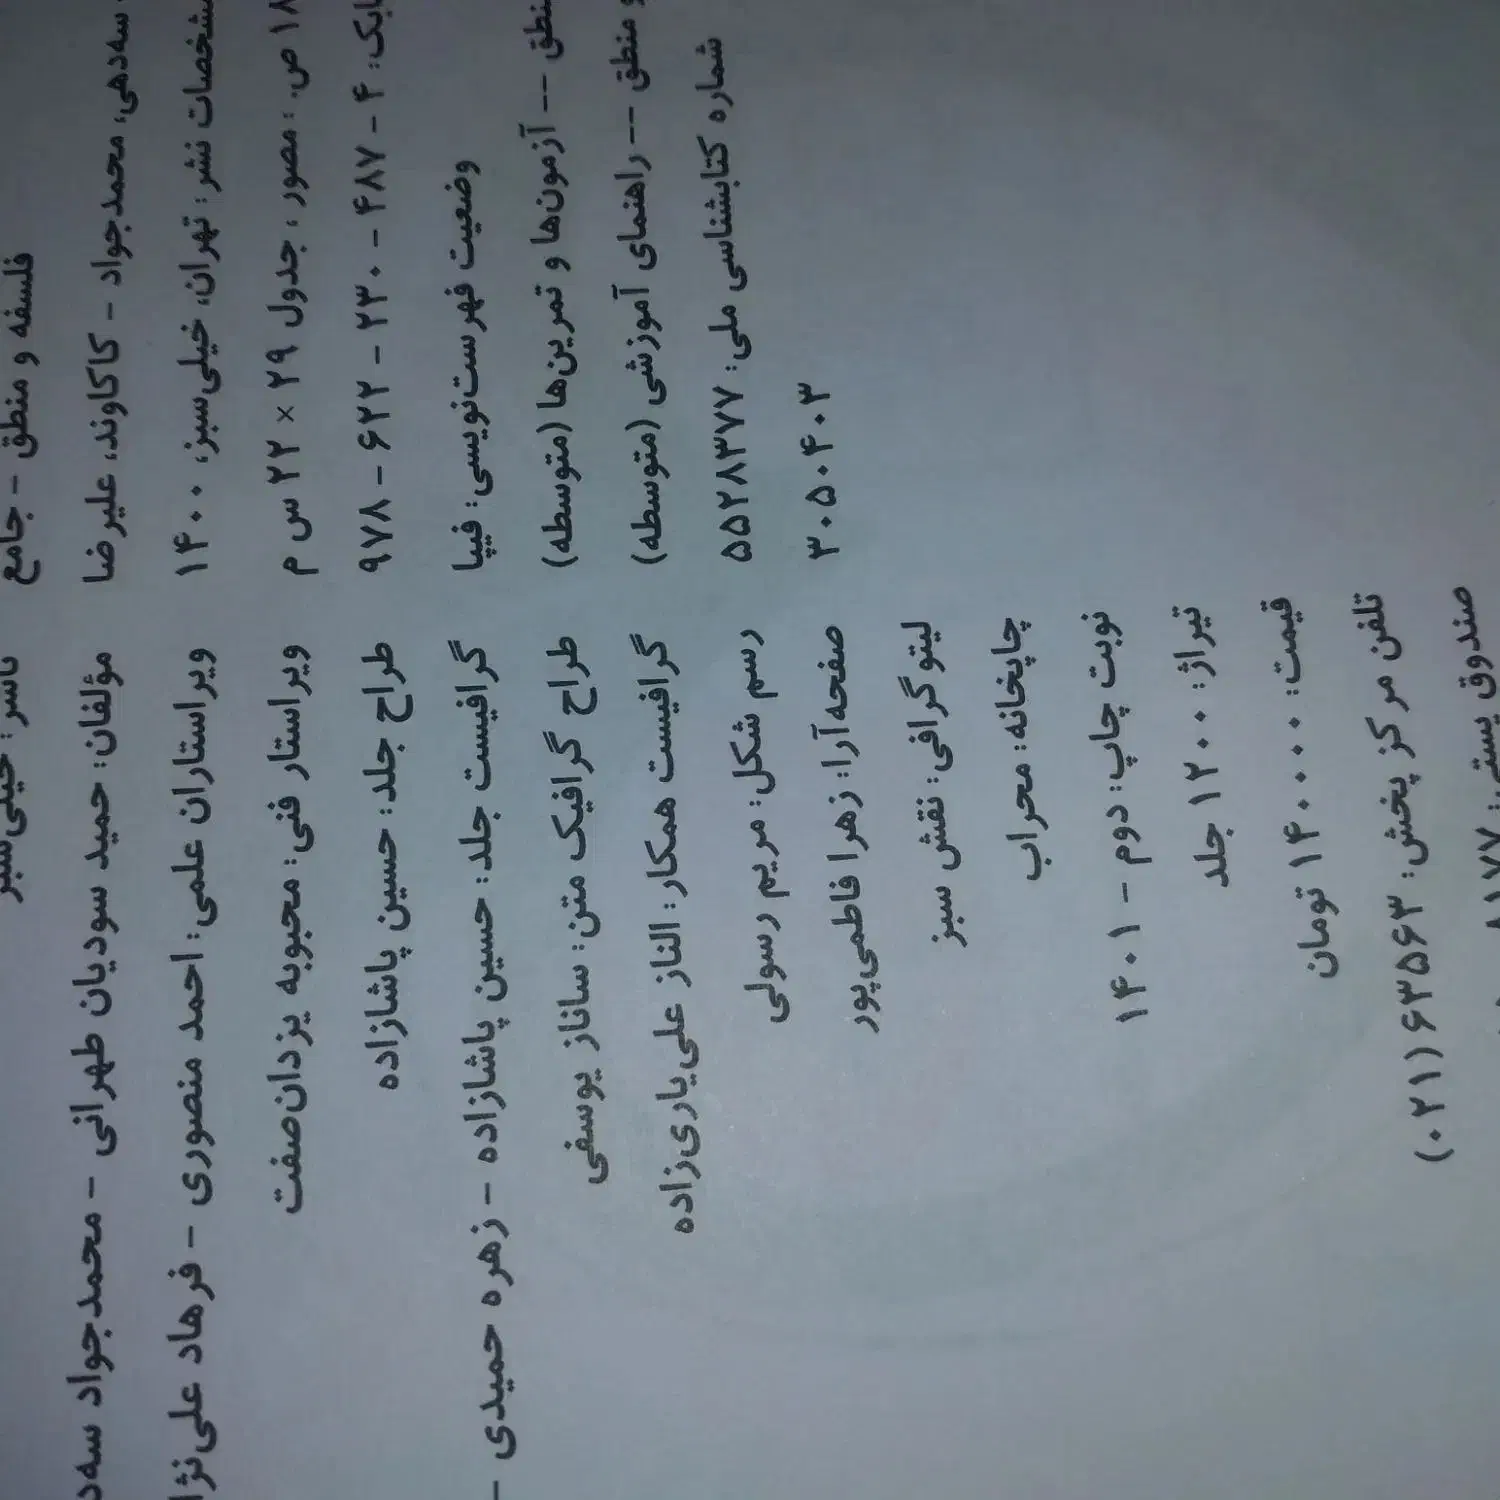 فلسفه و منطق - جامع
سه‌دهی، محمدجواد - کاکاوند، علیرضا
مشخصات نشر: تهران، خیلی‌سبز، ۱۴۰۰
ص.: مصور، جدول ۲۹ × ۲۲ س م
۹۷۸ - ۶۲۲ - ۲۳۰ - ۴۸۷ - ۴
وضعیت فهرست‌نویسی: فیپا
منطق -- آزمون‌ها و تمرین‌ها (متوسطه)
و منطق -- راهنمای آموزشی (متوسطه)
شماره کتابشناسی ملی: ۵۵۲۸۳۷۷
۳۰۵۰۴۰۳
ناشر: خیلی‌سبز
مؤلفان: حمید سودیان طهرانی - محمدجواد
ویراستاران علمی: احمد منصوری - فرهاد
ویراستار فنی: محبوبه یزدان‌صفت
طراح جلد: حسین پاشازاده
گرافیست جلد: حسین پاشازاده - زهره حمیدی -
طراح گرافیک متن: ساناز یوسفی
گرافیست همکار: الناز علی‌یاری‌زاده
رسم شکل: مریم رسولی
صفحه‌آرا: زهرا فاطمی‌پور
لیتوگرافی: نقش سبز
چاپخانه: محراب
نوبت چاپ: دوم - ۱۴۰۱
تیراژ: ۱۲۰۰ جلد
قیمت: ۱۴۰۰۰۰ تومان
تلفن مرکز پخش: ۶۳۵۶۳ (۰۲۱)
صندوق پستی: